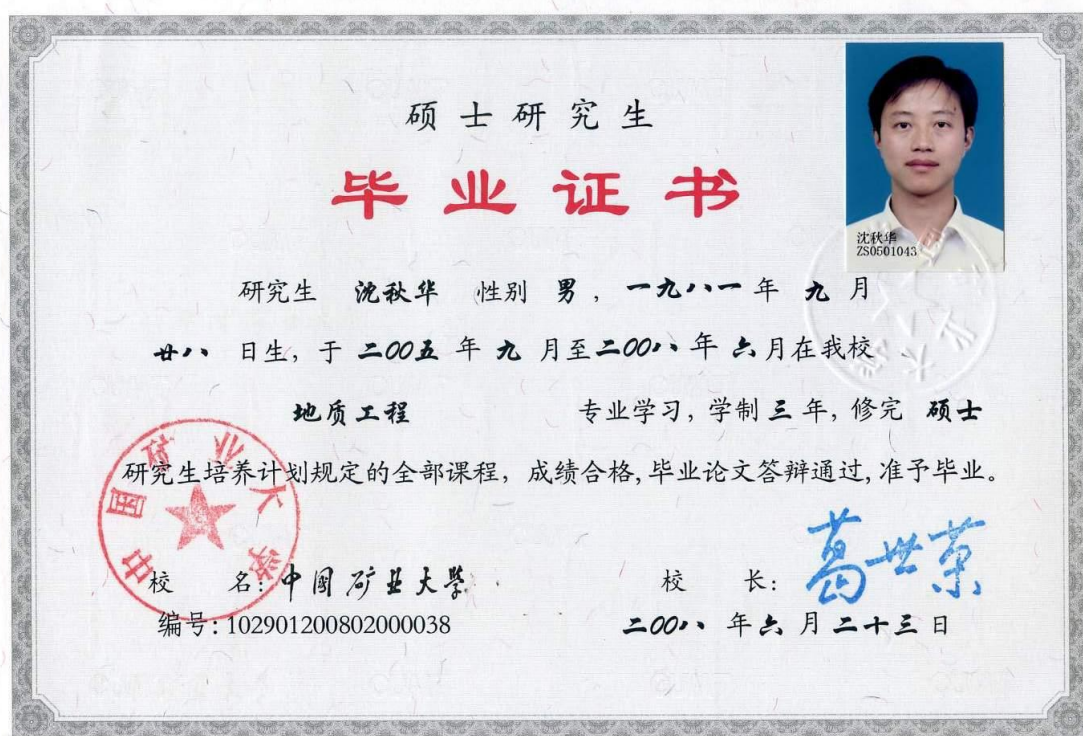 硕士研究生
毕业证书
沈秋华
ZS0501043
研究生 沈秋华 性别 男，一九八一年 九 月
廿八 日生，于 二00五 年 九 月至二00八年 六月在我校
地质工程 专业学习，学制三年，修完 硕士
研究生培养计划规定的全部课程，成绩合格，毕业论文答辩通过，准予毕业。
中国矿业大学
校 名：中国矿业大學
校 长：葛世荣
编号：102901200802000038
二00八 年六 月二十三日